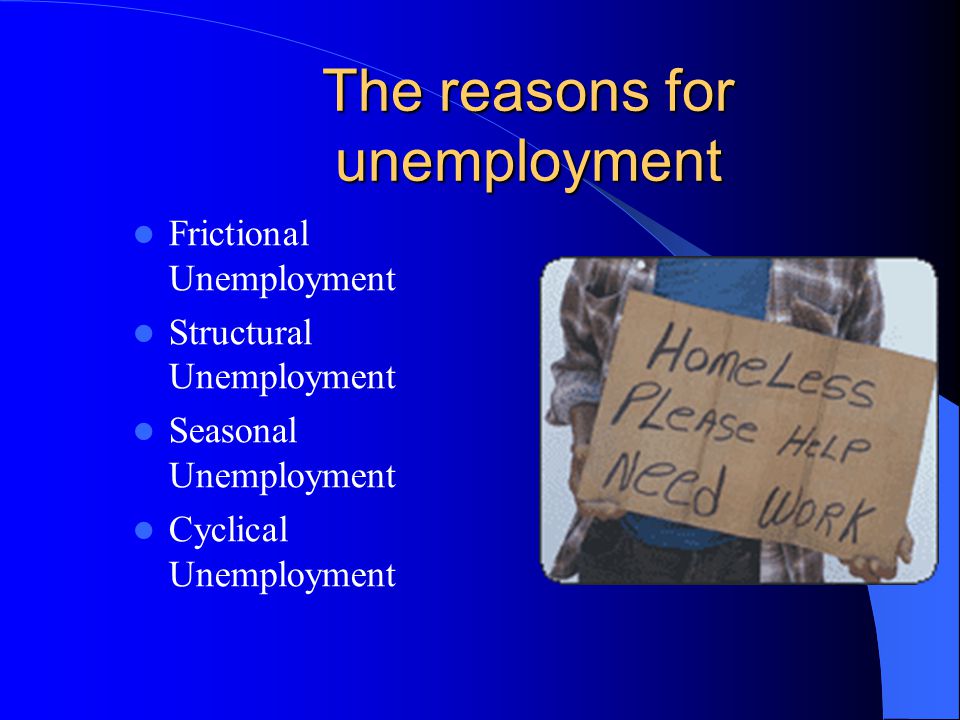 The reasons for
unemployment
Frictional
Unemployment
Structural
Unemployment
Seasonal
Unemployment
Cyclical
Unemployment
HomeLess
PLeAse HeLP
Need WORK